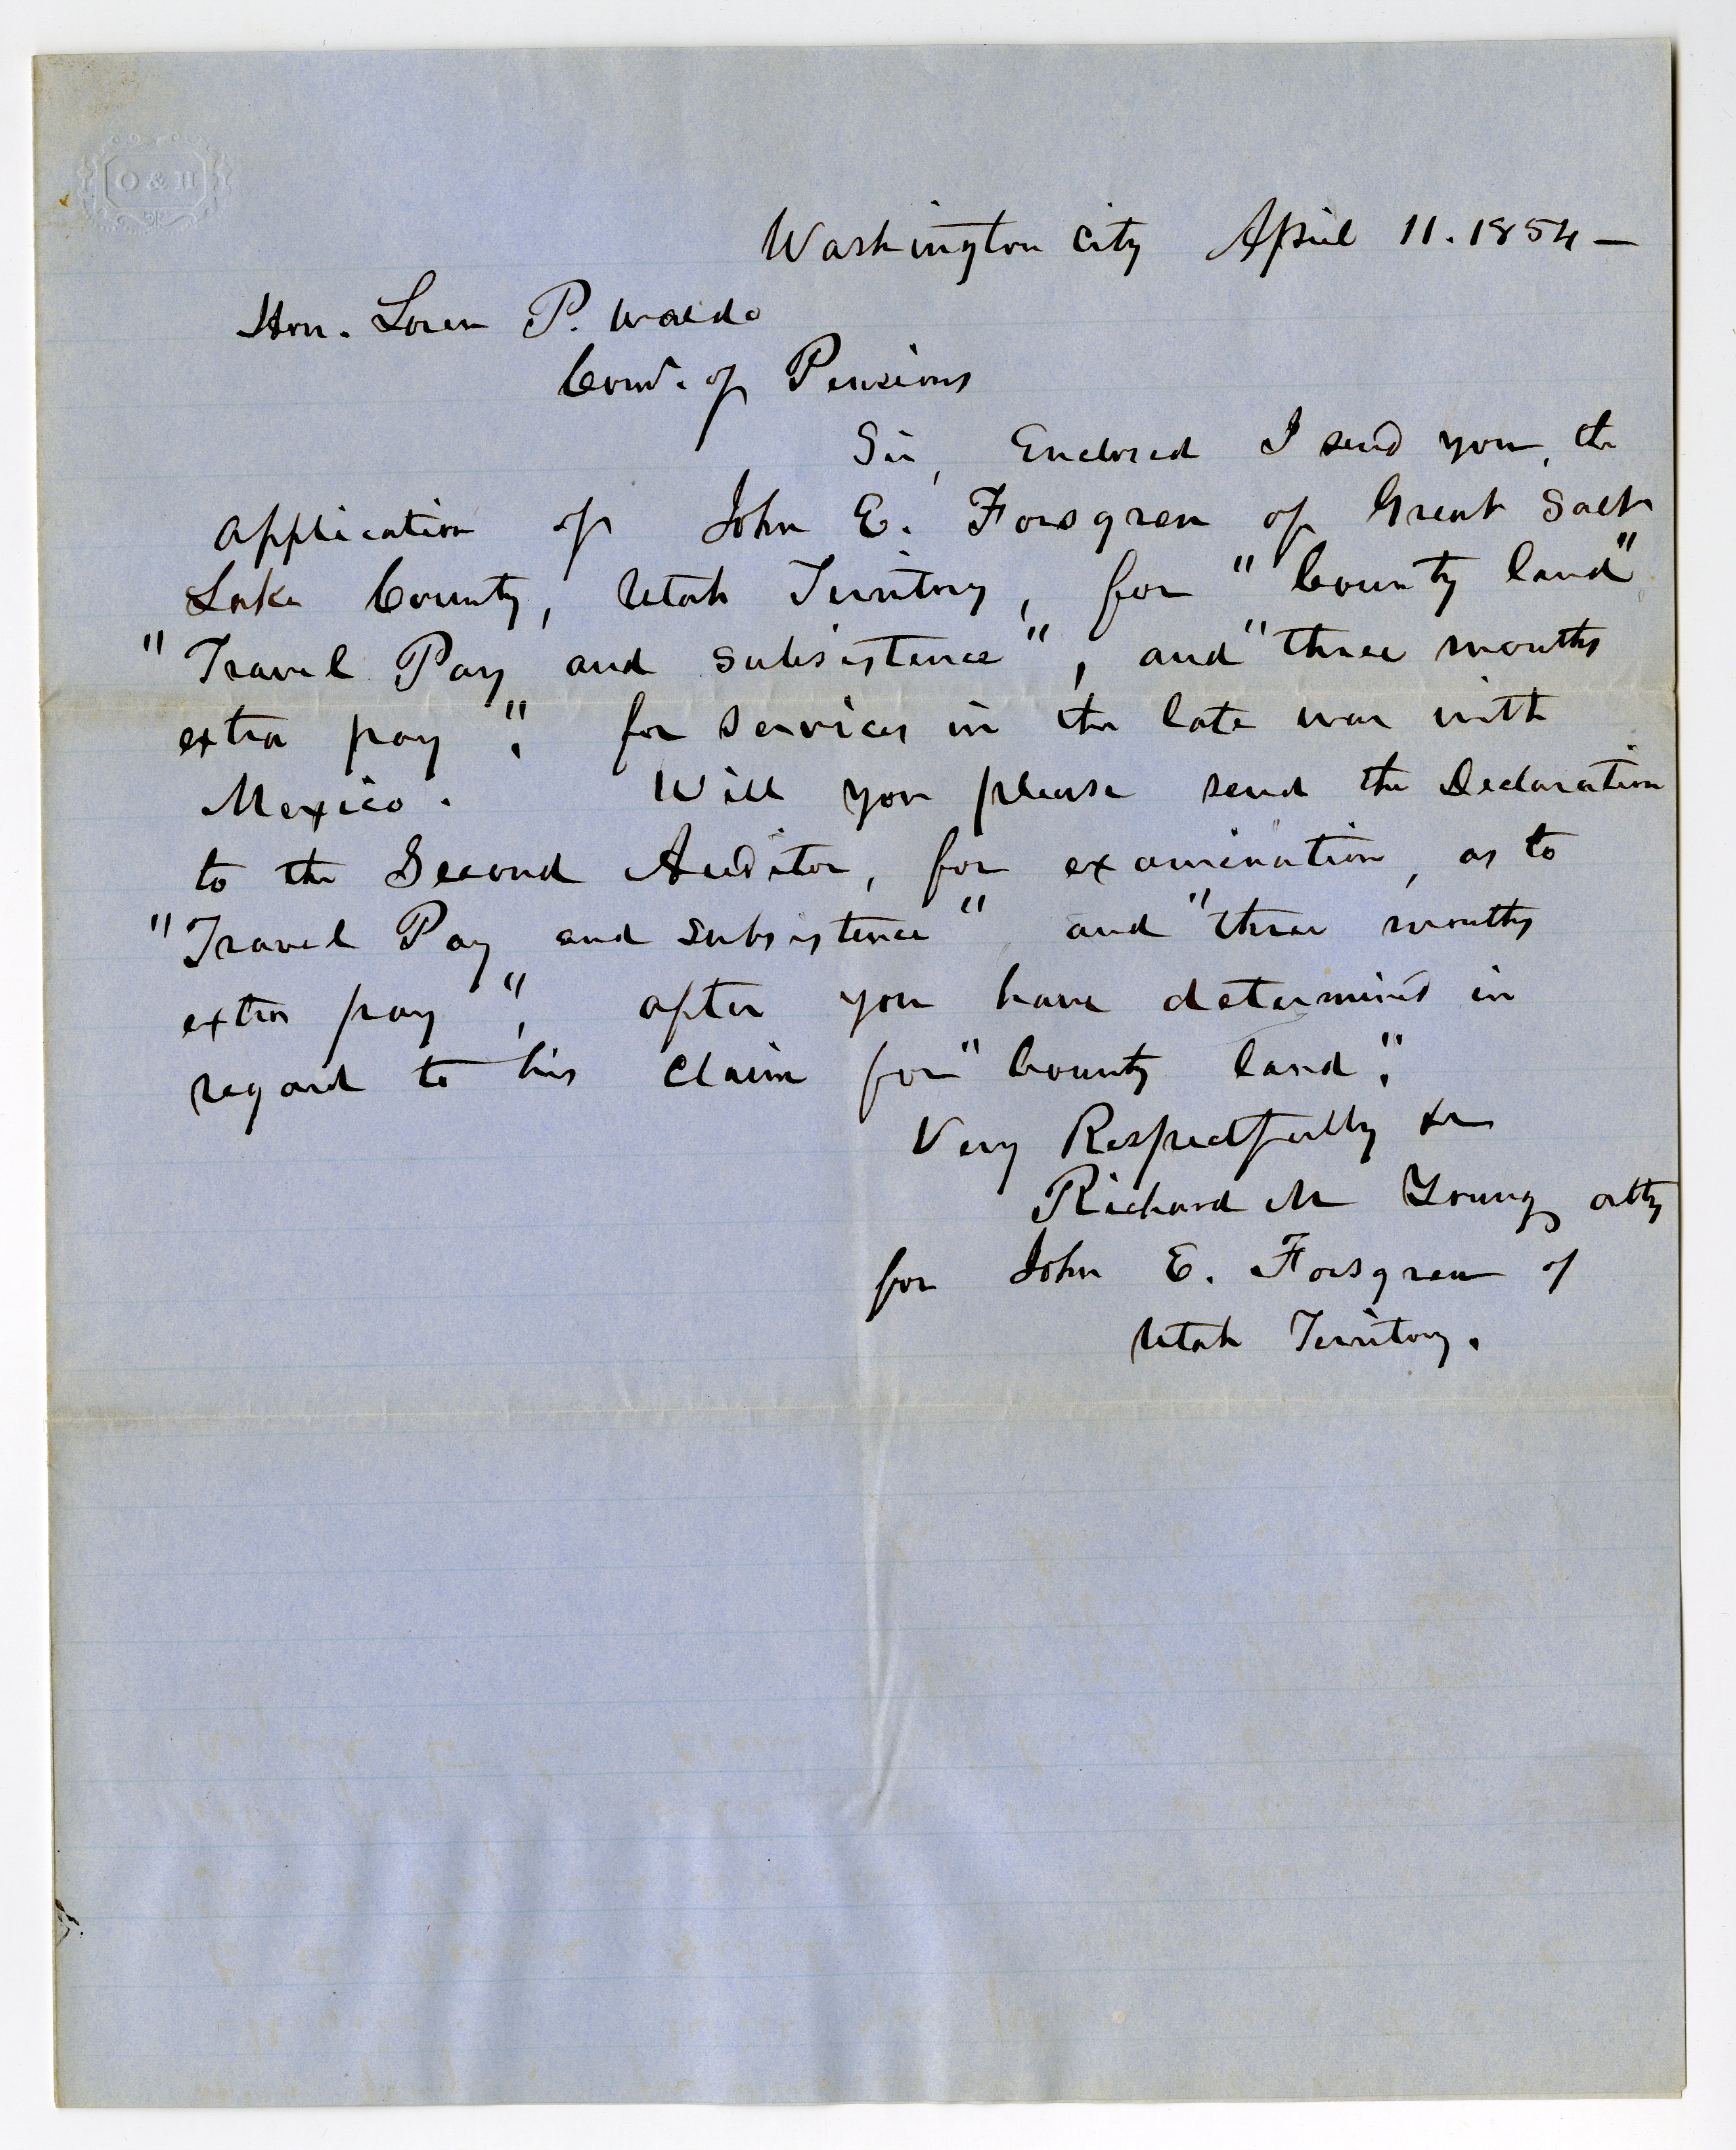 O & H
Washington City April 11. 1854 —
Hon. Loren P. Waldo
Comr. of Pensions
Sir, Enclosed I send you, the
application of John E. Forsgren of Great Salt
Lake County, Utah Territory, for "bounty land"
"Travel Pay and subsistence", and "three months
extra pay", for services in the late war with
Mexico. Will you please send the Declaration
to the Second Auditor, for examination, as to
"Travel Pay and subsistence" and "three months
extra pay", after you have determined in
regard to his claim for "bounty land".
Very Respectfully &c
Richard M Young atty
for John E. Forsgren of
Utah Territory.